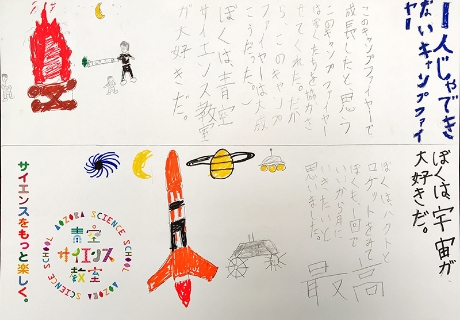 一人じゃでき
ないキャンプファイ
ヤー
このキャンプファイヤーで
成長したと思う
このキャンプファイヤー
はなかまたちと協力さ
せてくれた。だか
ら、このキャンプ
ファイヤーは大成
こうだた。
ぼくは青空
サイエンス教室
が大好きだ。
ぼくは宇宙が
大好きだ。
ロケットをみて
ぼくも一回で
いいから月に
いきたいと
思いました。
最高
AOZORA SCIENCE SCHOOL
AOZORA SCIENCE SCHOOL
青空
サイエンス
教室
サイエンスをもっと楽しく。